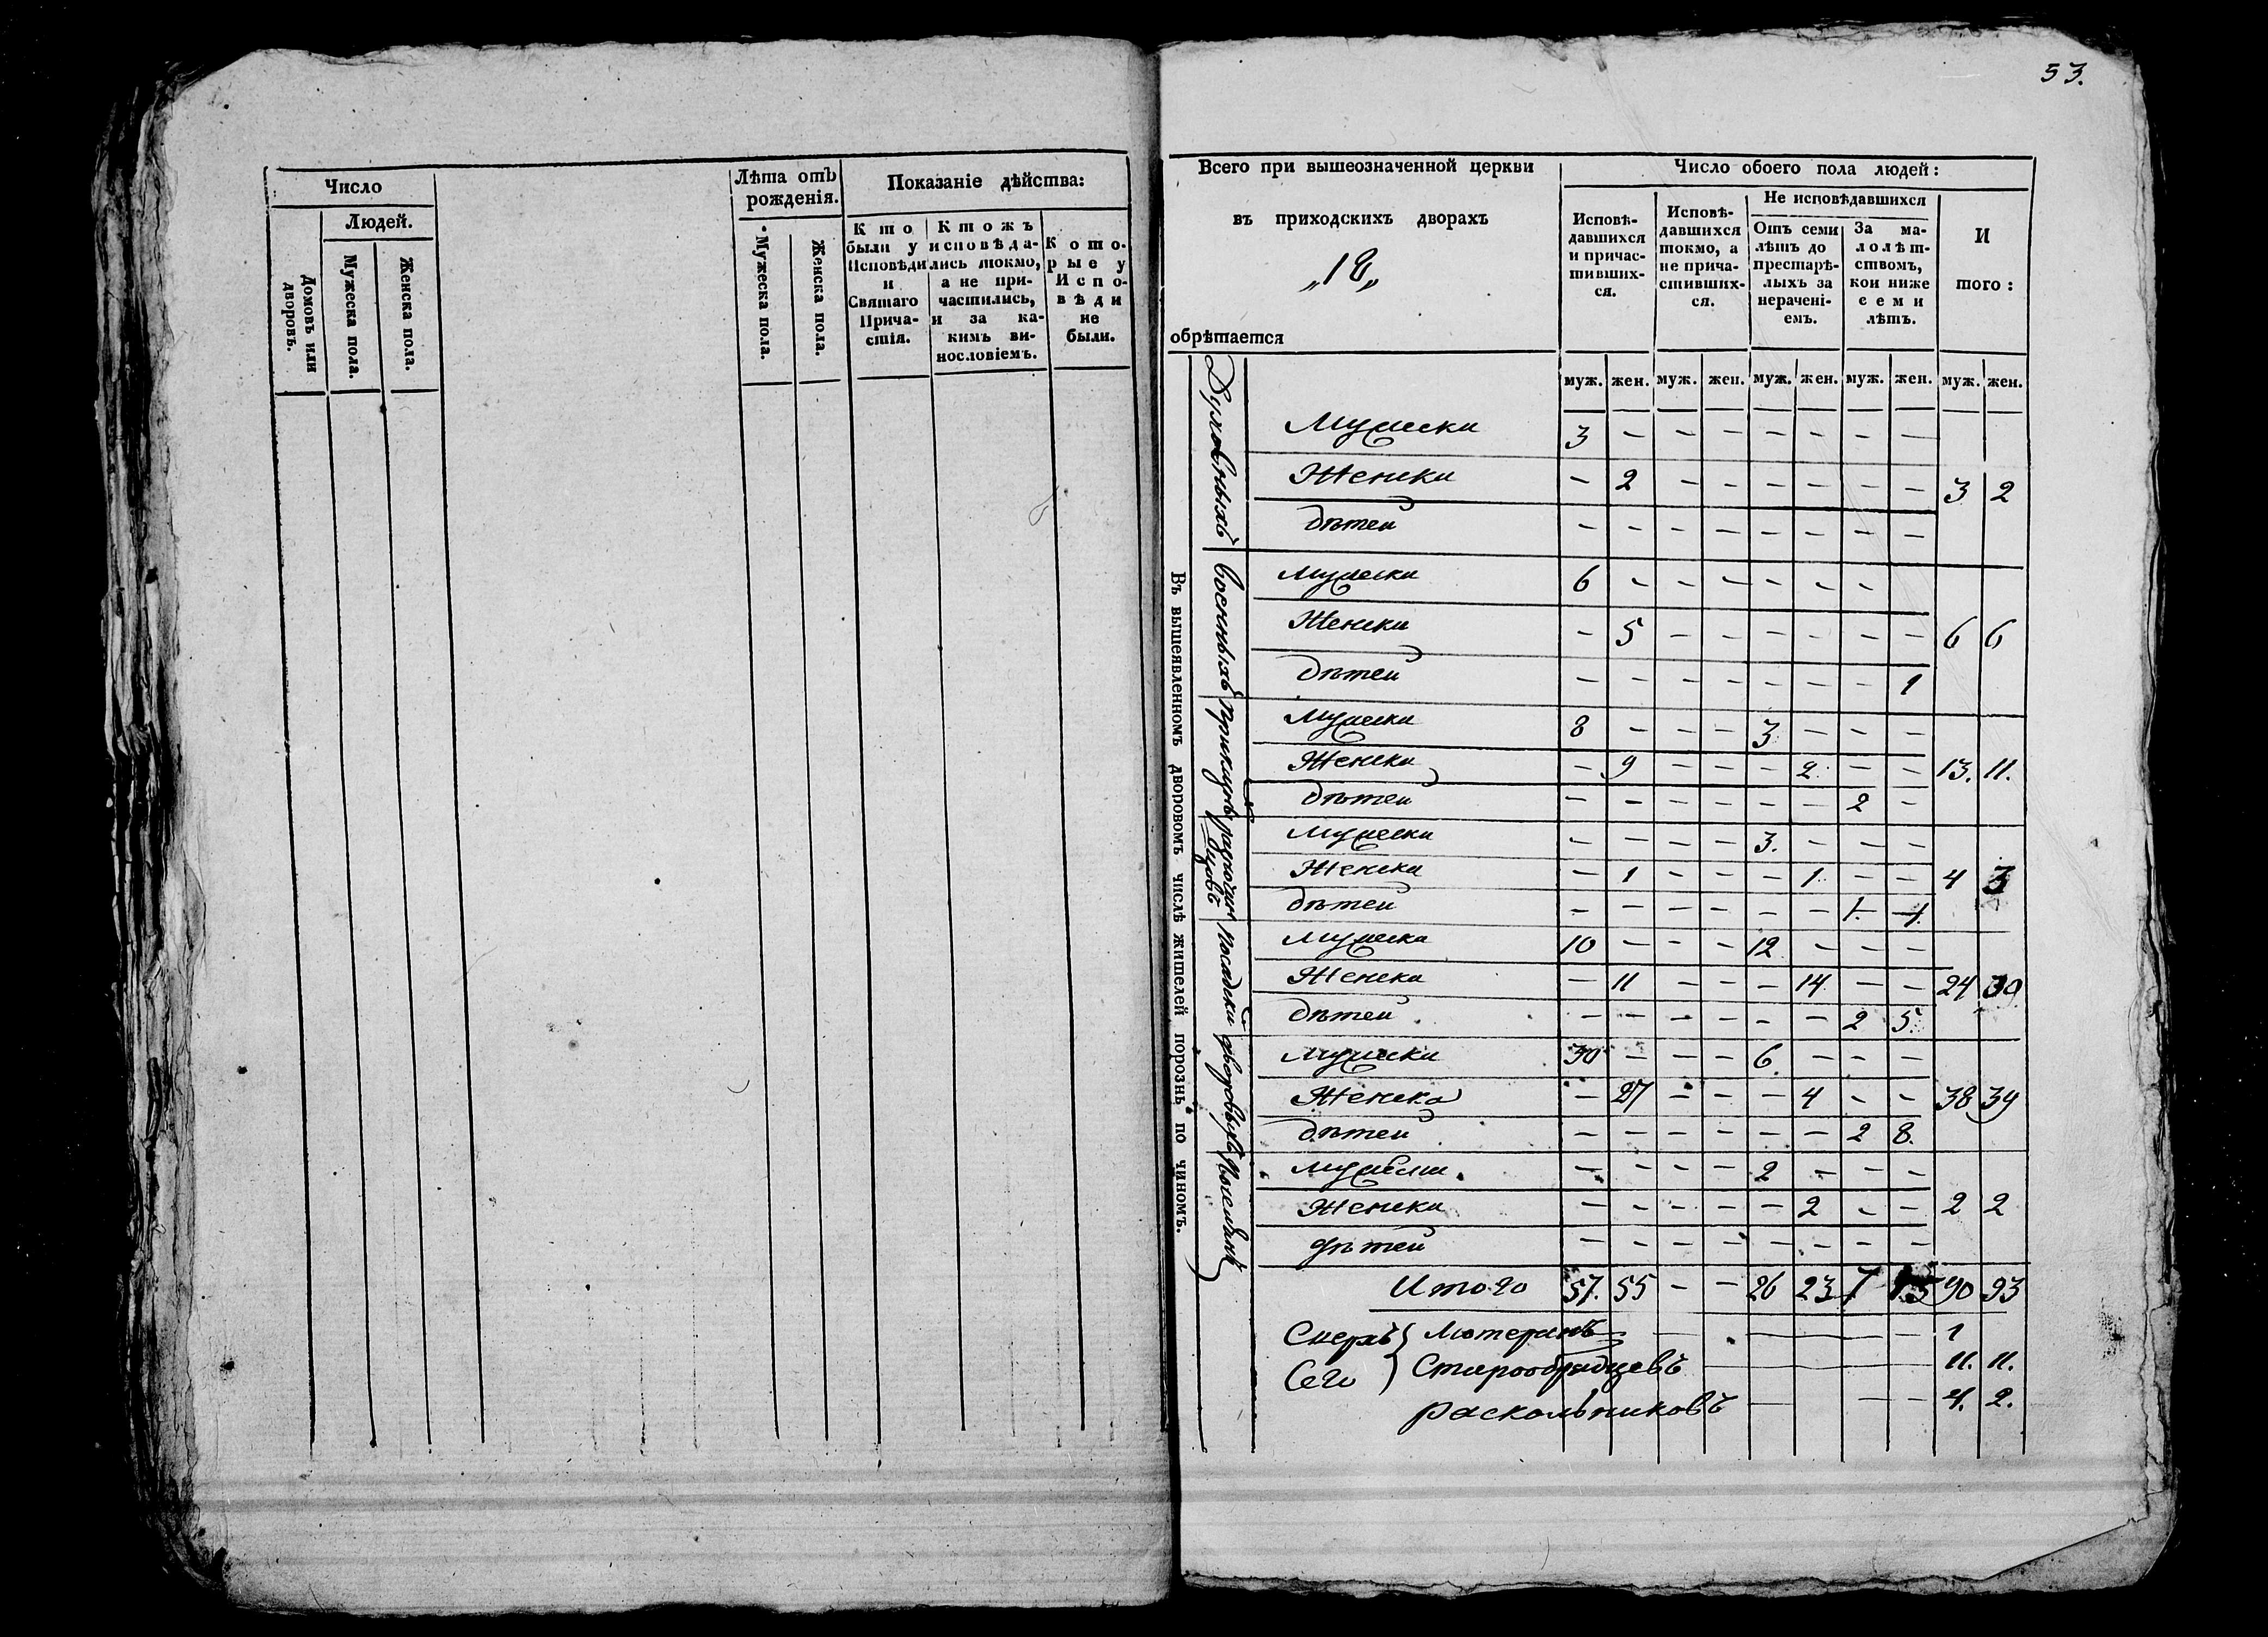 53.
Число
Людей.
Домовъ или дворовъ.
Мужеска пола.
Женска пола.
Лѣта отъ
рожденія.
Мужеска пола.
Женска пола.
Показаніе дѣйства:
Кто
были у
Исповѣди
и
Святаго
Прича-
стія.
Ктожъ
исповѣда-
лись токмо,
а не при-
частились,
и за ка-
кимъ ви-
нословіемъ.
Кото-
рые у
Испо-
вѣди
не
были.
Всего при вышеозначенной церкви
въ приходскихъ дворахъ
„18„
обрѣтается
Число обоего пола людей:
Исповѣ-
давшихся
и причас-
тивших-
ся.
Исповѣ-
давшихся
токмо, а
не прича-
стивших-
ся.
Не исповѣдавшихся
Отъ семи
лѣтъ до
престарѣ-
лыхъ за
нерачені-
емъ.
За ма-
лолѣт-
ствомъ,
кои ниже
семи
лѣтъ.
И
того:
муж. жен. муж. жен. муж. жен. муж. жен. муж. жен.
Въ вышеявленномъ дворовомъ числѣ жителей порознь по чиномъ.
Духовныхъ
Мужески 3 – – – – – – –
Женски – 2 – – – – – – 3 2
Дѣтей – – – – – – – –
Военныхъ
Мужески 6 – – – – – –
Женски – 5 – – – – – – 6 6
Дѣтей – – – – – – – 1
Мужески 8 – – – 3 – – –
Женски – 9 – – – 2 – – 13. 11.
Дѣтей – – – – – – 2 –
Мужески – – – – 3. – – –
Женски – 1 – – – 1 – – 4 3
Дѣтей – – – – – – 1. 1.
Посадски
Мужеска 10 – – – 12 – – –
Женска – 11 – – – 14 – – 24 30
Дѣтей – – – – – – 2 5
дворовыхъ
Мужески 30 – – – 6 – – –
Женска – 27 – – – 4 – – 38 39
Дѣтей – – – – – – 2 8.
Мужески – – – – 2 – – –
Женски – – – – – 2 – – 2 2
Дѣтей – – – – – – – –
Итого 57. 55 – – 26 23 7 15 90 93
Сверхъ Лютеранъ – – – 1
Сего Старообрядцевъ – – 11. 11.
Раскольниковъ – – – 4. 2.